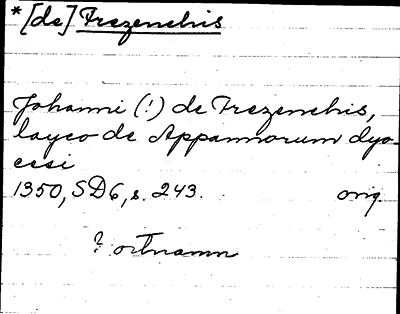 *[de] Frezenchis
Johanni (!) de Frezenchis,
layco de Appannorum dyo-
cesi
1350, SD6, s. 243. orig.
? ortnamn